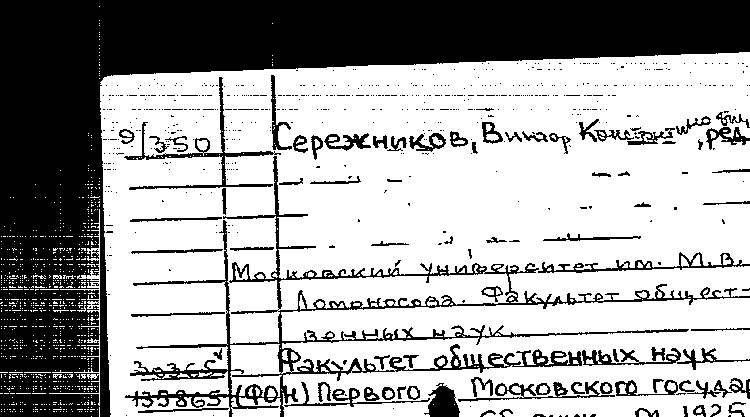 9/350 Сережников, Виктор Константинович, ред.
Московский университет им. М.В.
Ломоносова. Факультет общест-
венных наук.
30365 Факультет общественных наук
135865 (ФОН) Первого Московского государ
М. 1925